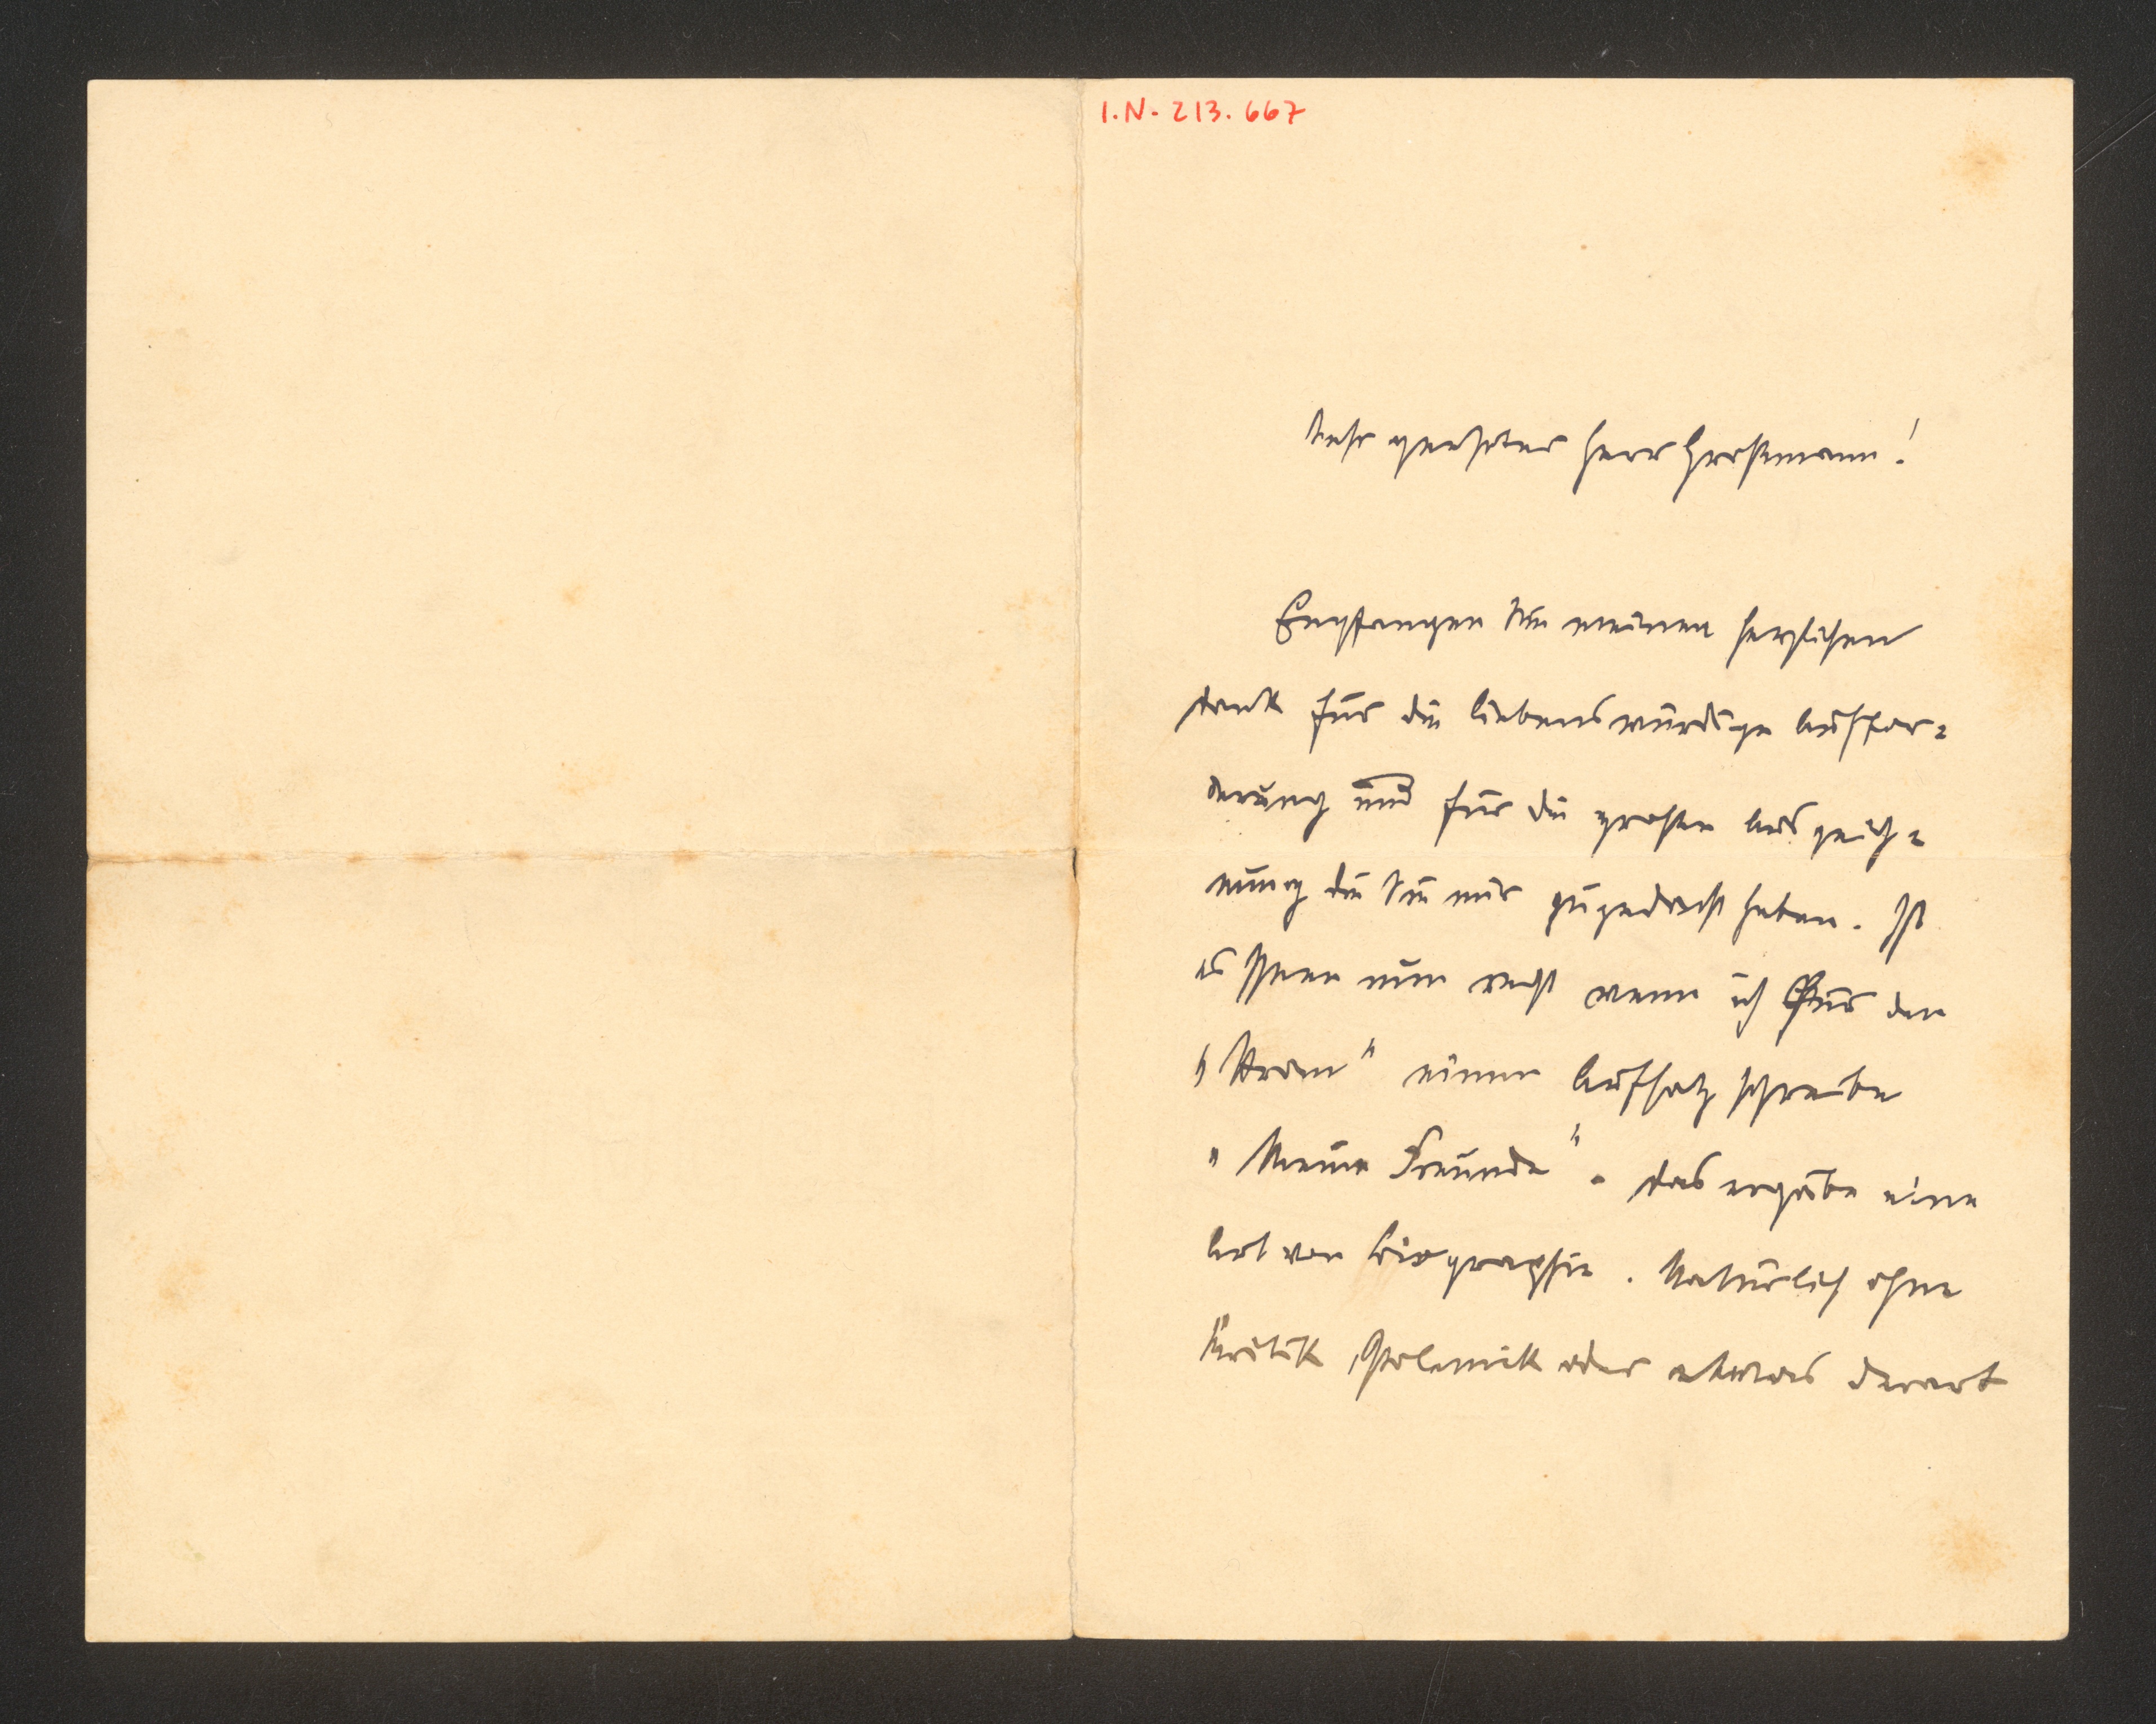 I.N. 213.667
Sehr geehrter Herr Großmann!
Empfangen Sie meinen herzlichen
Dank für die liebenswürdige Auffor=
derung und für die große Auszeich=
nung die Sie mir zugedacht haben. Ist
es Ihnen nun recht wenn ich für den
„Strom" einen Aufsatz schreibe
„Meine Freunde". Das ergäbe eine
Art von Biographie. Natürlich ohne
Kritik, Polemik oder etwas derart